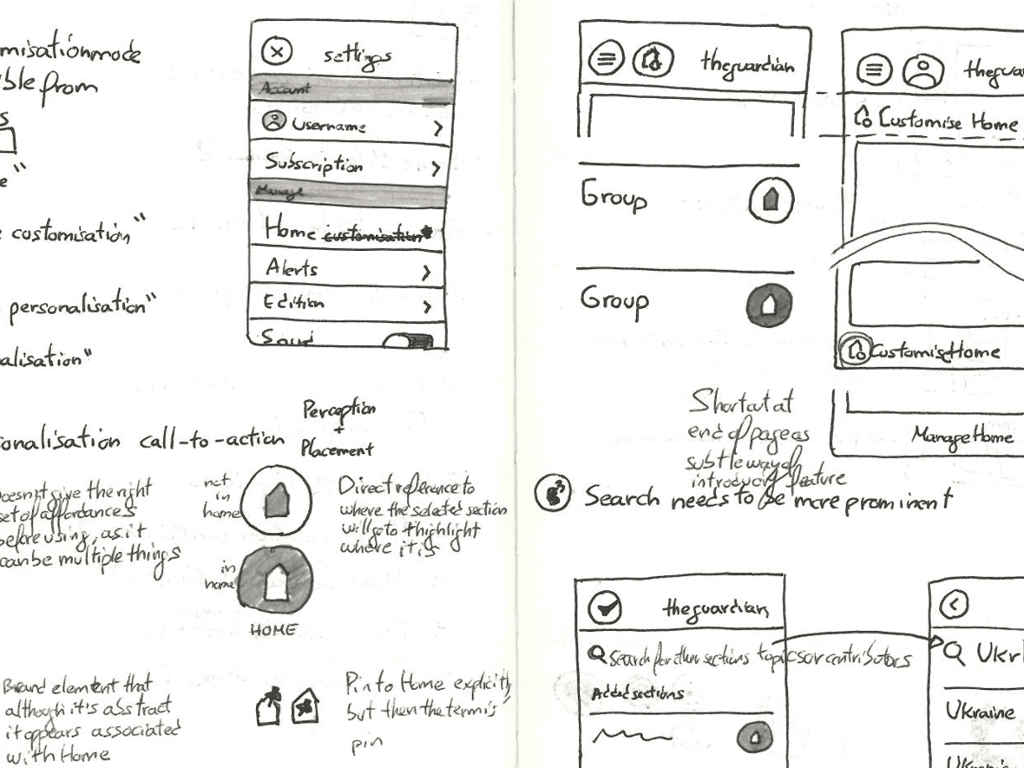 misationmode
ible from
s
e"
e customisation"
personalisation"
alisation"
settings
Account
Username
Subscription
Manage
Home customisation
Alerts
Edition
sonalisation call-to-action
Perception
+
Placement
Doesn't give the right
set of affordances
before using, as it
can be multiple things
not
in
home
in
home
HOME
Direct reference to
where the selected section
will go to + highlight
where it is
Brand element that
although it's abstract
it appears associated
with Home
Pin to Home explicitly
but then the term is
pin
theguardian
Group
Group
theguar
Customise Home
Customise Home
Manage Home
Shortcut at
end of page as
subtle way of
introducing feature
Search needs to be more prominent
theguardian
Search for other sections topics or contributors
Added sections
Ukr
Ukraine